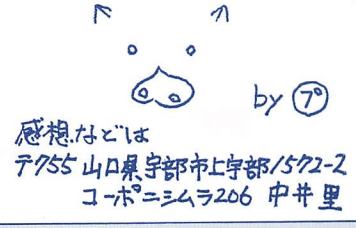 by プ
感想などは
〒755 山口県宇部市上宇部1572-2
コーポニシムラ206 中井 里